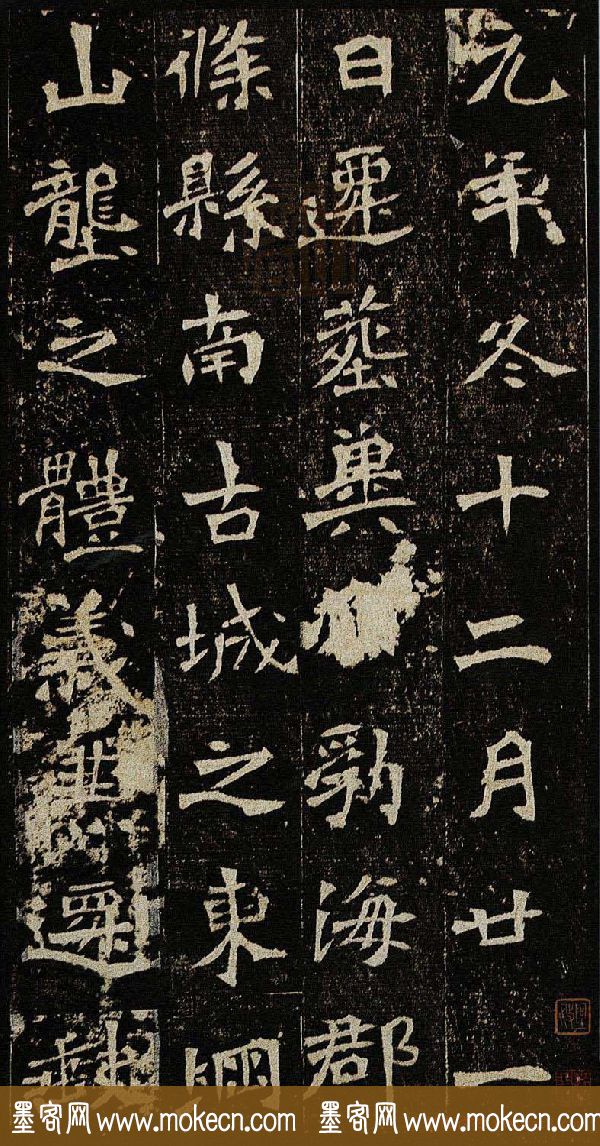 元年冬十二月廿一
日遷塟冀勃海郡
條縣南古城之東
山壟之體義遷
墨客网 www.mokecn.com 墨客网 www.mokecn.com